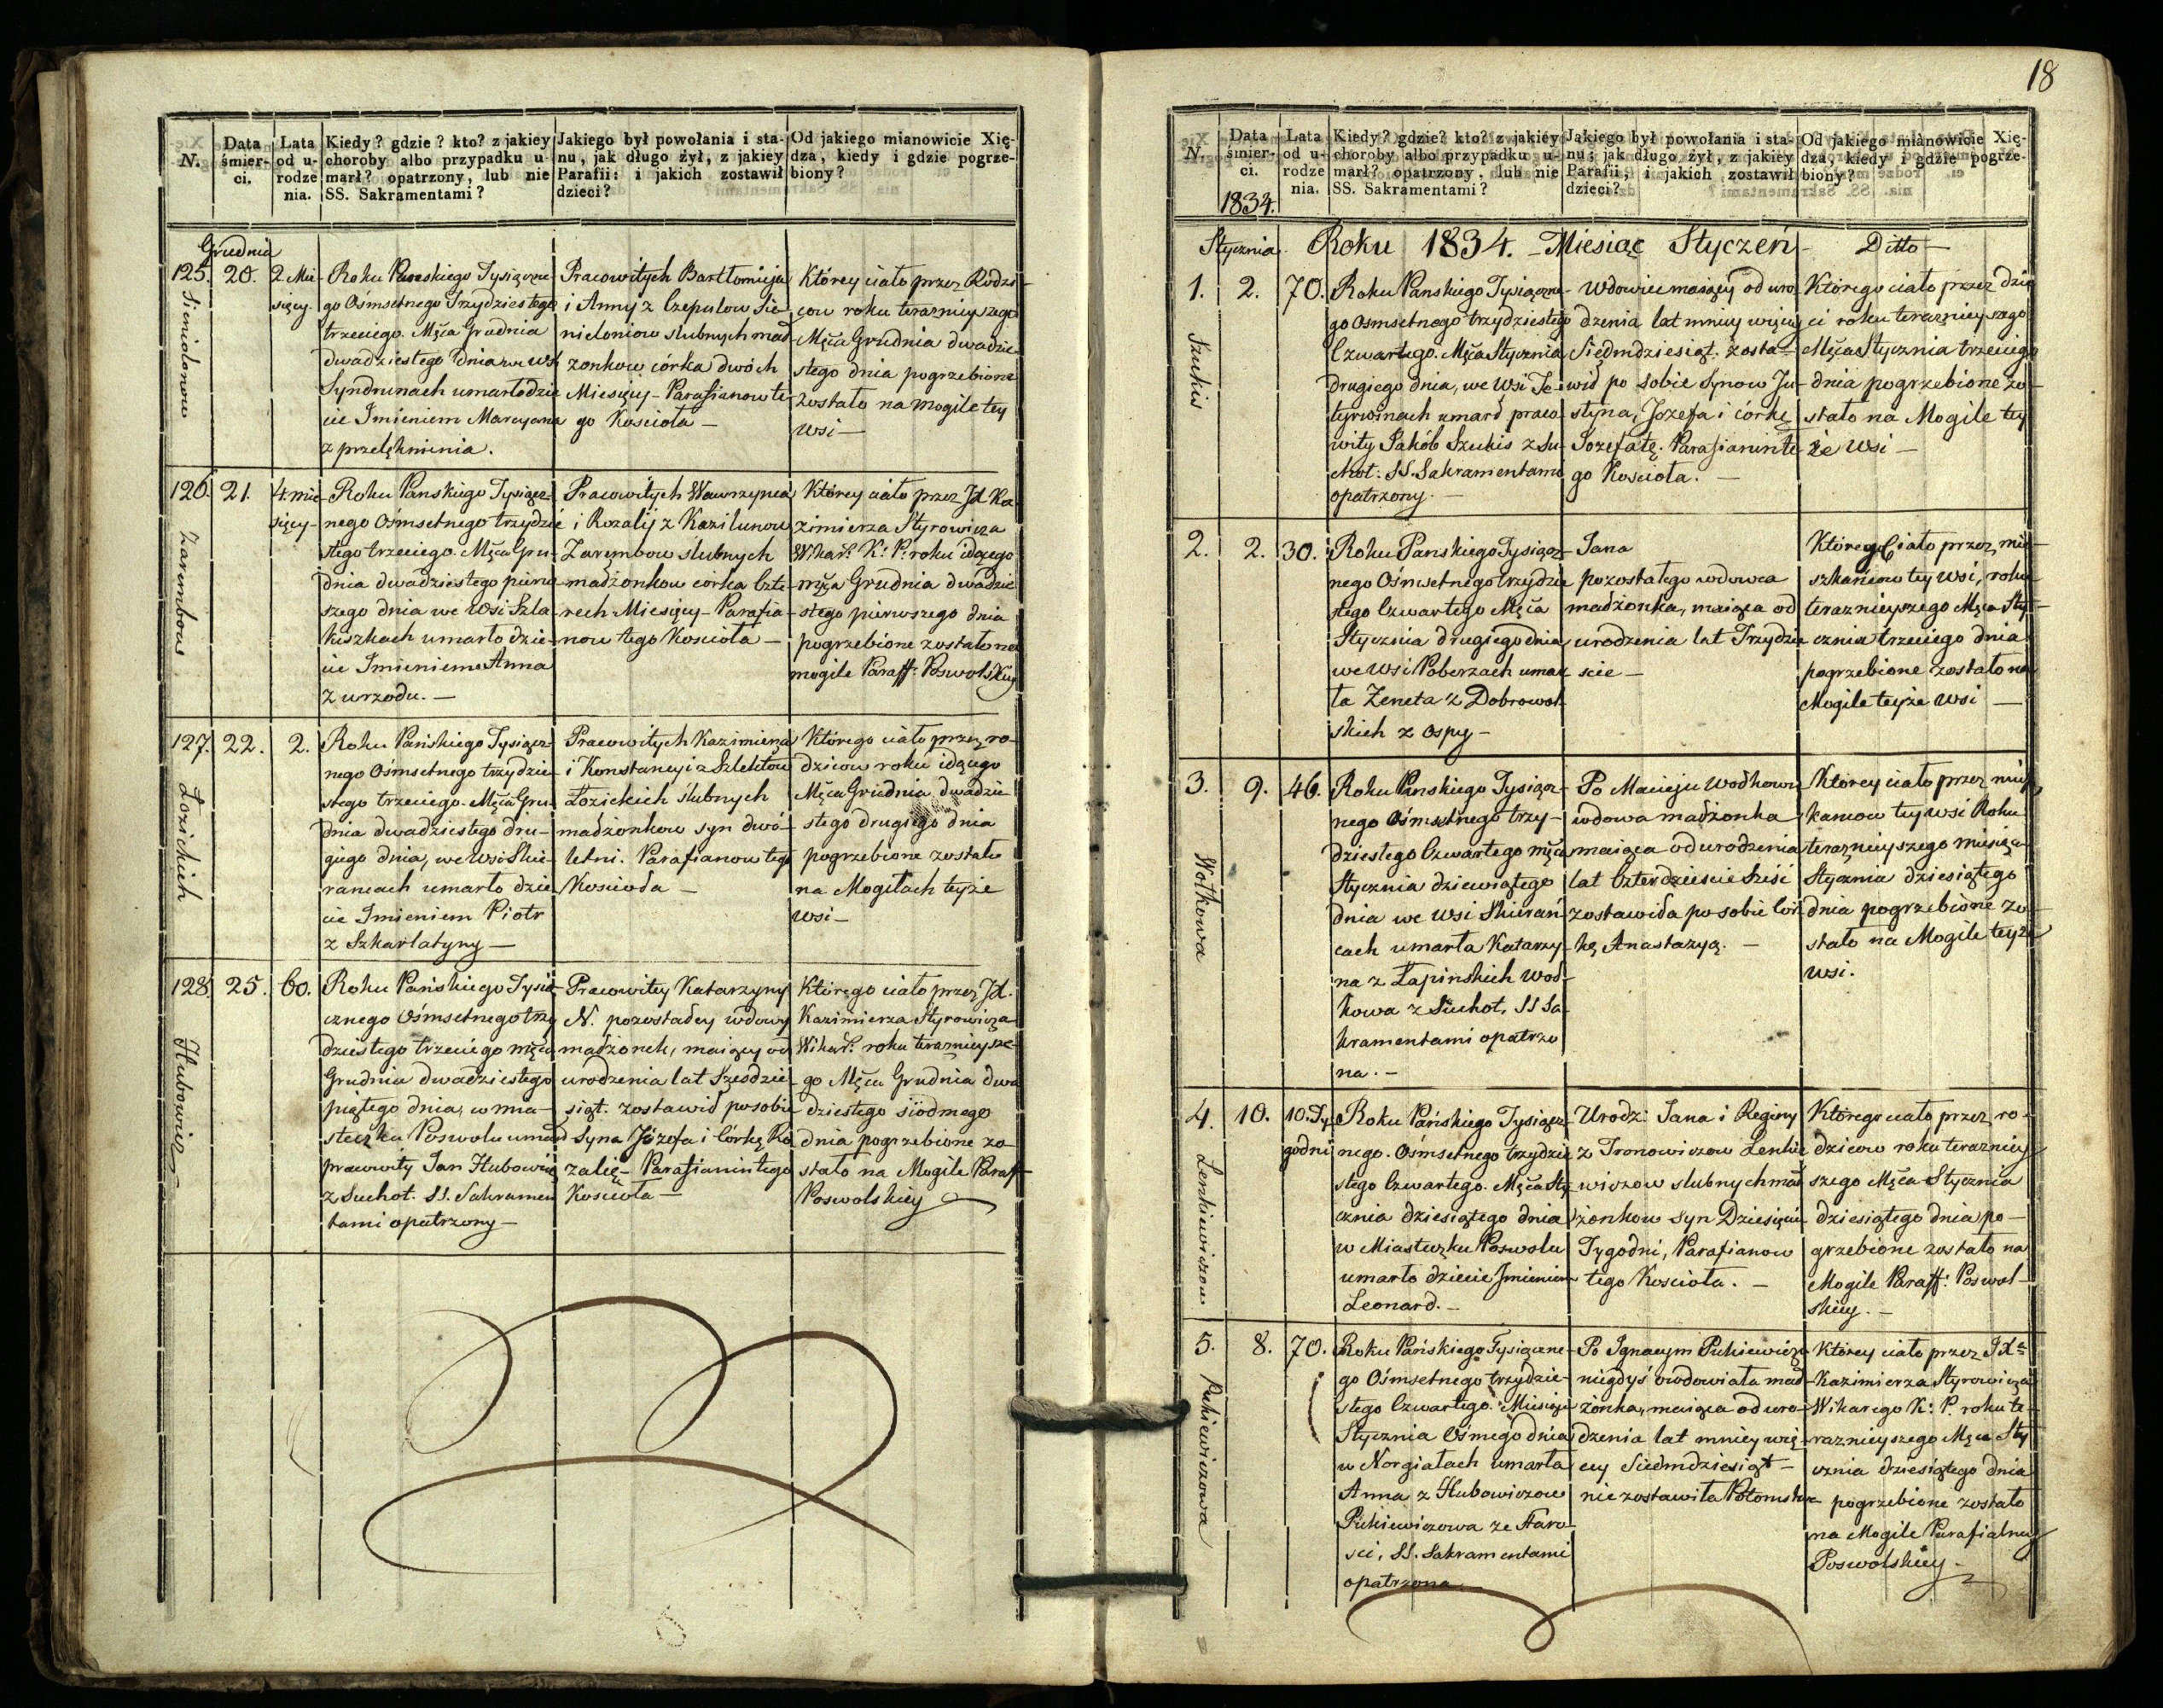 N.
Data śmier- ci.
Lata od u- rodze nia.
Kiedy? gdzie? kto? z jakiey
choroby albo przypadku u-
marł? opatrzony, lub nie
SS. Sakramentami?
Jakiego był powołania i sta-
nu, jak długo żył, z jakiey
Parafii; i jakich zostawił
dzieci?
Od jakiego mianowicie Xię-
dza, kiedy i gdzie pogrze-
biony?
Grudnia
125. 20. 2 Mie-
sięcy
Sieniolonow
Roku Panskiego Tysiączne-
go Ośmsetnego Trzydziestego
trzeciego. Mca Grudnia
dwadziestego dnia we wsi
Syndrunach umarło dzie
cie Imieniem Maryanna
z przelęknienia.
Pracowitych Bartłomieja
i Anny z Czepulow Sie
nieloniow slubnych mał
zonkow córka dwóch
Miesięcy - Parafianow te
go Kościoła -
Którey ciało przez Rodzi-
cow roku teraznieyszego
Mca Grudnia dwadzie-
stego dnia pogrzebione
zostało na mogile tey
wsi -
126. 21. 4 mie-
sięcy-
Zarembow
Roku Panskiego Tysiącz-
nego Ośmsetnego trzydzie
stego trzeciego. Mca Gru-
dnia dwadziestego pierw
szego dnia we wsi Szla
kiszkach umarło dzie-
cie Imieniem Anna
z wrzodu. -
Pracowitych Wawrzynca
i Rozalij z Kazilunow
Zarembow slubnych
małżonkow córka Czte-
rech Miesięcy - Parafia-
now tego Kościoła -
Którey ciało przez Jd Ka
zimierza Styrowicza
Wikar. K: P. roku idącego
mca Grudnia dwadzie
stego pierwszego dnia
pogrzebione zostało na
mogile Paraff: Poswolskiey
127. 22. 2.
Łozickich
Roku Pańskiego Tysiącz-
nego Ośmsetnego trzydzie-
stego trzeciego. Mca Gru-
dnia dwadziestego dru-
giego dnia, we wsi Skie-
rancach umarło dzie
cie Imieniem Piotr
z Szkarlatyny -
Pracowitych Kazimierza
i Konstancyi z Szlektow
Łozickich slubnych
małżonkow syn dwó-
letni. Parafianow tego
Koscioła -
Którego ciało przez ro-
dzicow roku idącego
Mca Grudnia dwadzie
stego drugiego dnia
pogrzebione zostało
na Mogiłach teyże
wsi -
128. 25. 60.
Hubowicz
Roku Pańskiego Tysią-
cznego Ośmsetnego trzy
dziestego trzeciego mca
Grudnia dwadziestego
piątego dnia, w mia-
steczku Poswolu umarł
pracowity Jan Hubowicz
z Suchot. SS. Sakramen
tami opatrzony -
Pracowitey Katarzyny
N. pozostałey wdowy
małżonek, maiący od
urodzenia lat Sześdzie-
siąt. zostawił po sobie
Syna Józefa i Córkę Ro
zalię - Parafianin tego
Kościoła -
Którego ciało przez Jd.
Kazimierza Styrowicza
Wikar. roku teraznieysze-
go Mca Grudnia dwa
dziestego siódmego
dnia pogrzebione zo-
stało na Mogile Paraf-
Poswolskiey
18
N.
Data śmier- ci.
1834.
Lata od u- rodze nia.
Kiedy? gdzie? kto? z jakiey
choroby albo przypadku u-
marł? opatrzony, lub nie
SS. Sakramentami?
Jakiego był powołania i sta-
nu; jak długo żył, z jakiey
Parafii, i jakich zostawił
dzieci?
Od jakiego mianowicie Xię-
dza, kiedy i gdzie pogrze-
biony?
Stycznia Roku 1834. - Miesiąc Styczeń - Ditto -
1. 2. 70.
Szukis
Roku Panskiego Tysiączne-
go Osmsetnego trzydziestego
Czwartego. Mca Stycznia
drugiego dnia, we wsi Je
tyrwinach umarł praco
wity Jakób Szukis z Su-
chot: SS. Sakramentami
opatrzony. -
Wdowiec maiący od uro
dzenia lat mniey więcey
Siedmdziesiąt. zosta-
wił po sobie Synow Ju-
styna, Jozefa i córkę
Jozefatę. Parafianin te
go Kościoła. -
Którego ciało przez dzie
ci roku teraznieyszego
Mca Stycznia trzeciego
dnia pogrzebione zo-
stało na Mogile tey
że wsi -
2. 2. 30.
Roku Panskiego Tysiącz-
nego Ośmsetnego trzydzie
stego Czwartego Mca
Stycznia drugiego dnia
we wsi Poberzach umar
ła Zeneta z Dobrowol
skich z ospy -
Jana
pozostałego wdowca
małżonka, maiąca od
urodzenia lat Trzydzie
scie -
Którego Ciało przez mie-
szkańcow tey wsi, roku
teraznieyszego Mca Sty-
cznia trzeciego dnia
pogrzebione zostało na
Mogile teyże wsi -
3. 9. 46.
Wolkowa
Roku Panskiego Tysiącz-
nego Ośmsetnego trzy-
dziestego Czwartego mca
Stycznia dziewiątego
dnia we wsi Skierań
cach umarła Katarzy-
na z Łapinskich Woł-
kowa z Suchot, SS Sa-
kramentami opatrzo
na. -
Po Macieju Wołkowu
wdowa małżonka
maiąca od urodzenia
lat Czterdziescie Sześć
zostawiła po sobie Cór-
kę Anastazyą. -
Którey ciało przez miesz
kancow tey wsi Roku
teraznieyszego miesiąca
Stycznia dziesiątego
dnia pogrzebione zo-
stało na Mogile teyże
wsi.
4. 10. 10. Ty
godni
Lenkiewiczow
Roku Pańskiego Tysiącz
nego. Ośmsetnego trzydzie
stego Czwartego. Mca Sty
cznia dziesiątego dnia
w Miasteczku Poswolu
umarło dziecie Imieniem
Leonard. -
Urodz: Jana i Reginy
z Tronowiczow Lenkie
wiczow slubnych mał
żonkow syn Dziesięciu
Tygodni, Parafianow
tego Kościoła. -
Którego ciało przez ro-
dzicow roku terazniey
szego Mca Stycznia
dziesiątego dnia po-
grzebione zostało na
Mogile Paraff: Poswol-
skiey. -
5. 8. 70.
Pukiewiczowa
Roku Pańskiego Tysiączne-
go Ośmsetnego trzydzie-
stego Czwartego. Miesiąca
Stycznia Ósmego dnia
w Norgiałach umarła
Anna z Hubowiczow
Pukiewiczowa ze Staro-
sci, SS. Sakramentami
opatrzona -
Po Ignacym Pukiewiczu
niegdyś owdowiała mał
żonka, maiąca od uro-
dzenia lat mniey wię-
cey Siedmdziesiąt -
nie zostawiła Potomstwa
Którey ciało przez Jd
Kazimierza Styrowicza
Wikarego K: P. roku te-
raznieyszego Mca Sty
cznia dziesiątego dnia
pogrzebione zostało
na Mogile Parafialney
Poswolskiey -